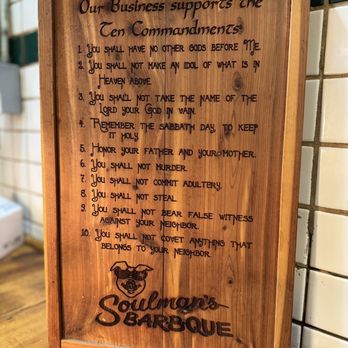 Our Business supports the
Ten Commandments
1. You shall have no other gods before Me.
2. You shall not make an idol of what is in
Heaven above.
3. You shall not take the name of the
Lord your God in vain.
4. Remember the sabbath day, to keep
it holy.
5. Honor your father and your mother.
6. You shall not murder.
7. You shall not commit adultery.
8. You shall not steal.
9. You shall not bear false witness
against your neighbor.
10. You shall not covet anything that
belongs to your neighbor.
Soulman's
BARBQUE